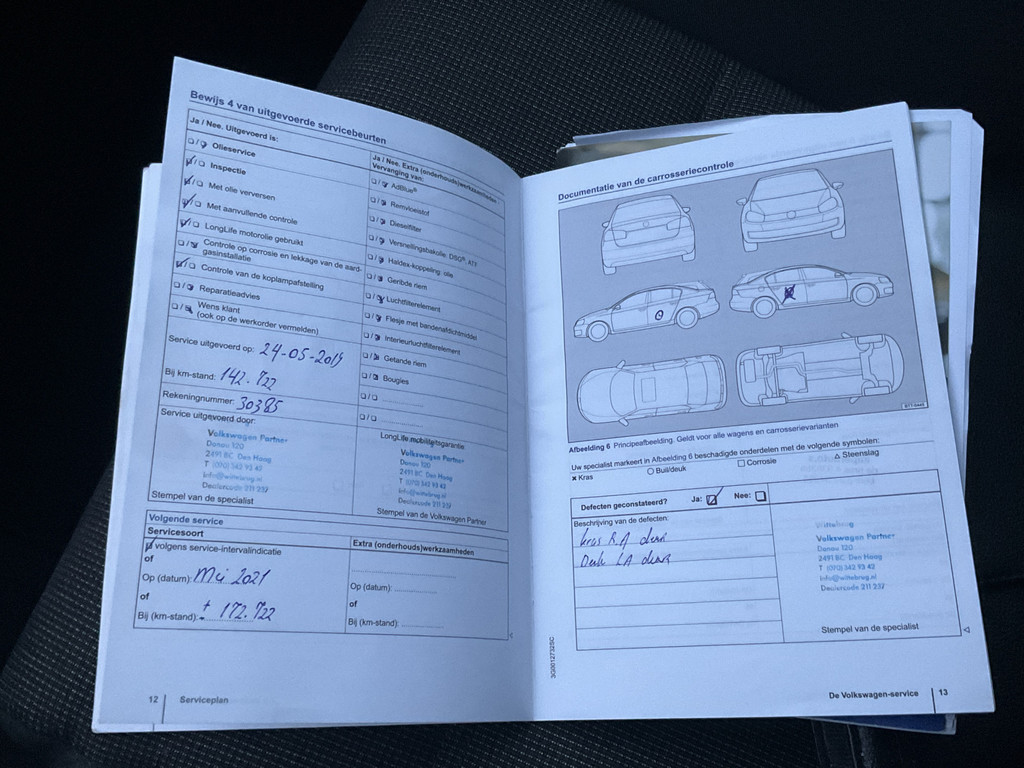 Bewijs 4 van uitgevoerde servicebeurten
Ja / Nee. Uitgevoerd is:
Olieservice
Inspectie
Met olie verversen
Met aanvullende controle
LongLife motorolie gebruikt
Controle op corrosie en lekkage van de aard-
gasinstallatie
Controle van de koplampafstelling
Reparatieadvies
Wens klant
(ook op de werkorder vermelden)
Service uitgevoerd op: 24-05-2019
Bij km-stand: 142.722
Rekeningnummer: 30385
Service uitgevoerd door:
Volkswagen Partner
Donau 120
2491 BC Den Haag
T (070) 342 93 42
Info@wittebrug.nl
Dealercode 211 237
Stempel van de specialist
Ja / Nee. Extra (onderhouds)werkzaamheden
Vervanging van:
AdBlue®
Remvloeistof
Dieselfilter
Versnellingsbakolie: DSG®, ATF
Haldex-koppeling: olie
Geribde riem
Luchtfilterelement
Flesje met bandenafdichtmiddel
Interieurluchtfilterelement
Getande riem
Bougies
LongLife mobiliteitsgarantie
Volkswagen Partner
Donau 120
2491 BC Den Haag
T (070) 342 93 42
Info@wittebrug.nl
Dealercode 211 237
Stempel van de Volkswagen Partner
Volgende service
Servicesoort
volgens service-intervalindicatie
of
Op (datum): Mei 2021
of
Bij (km-stand): ± 172.722
Extra (onderhouds)werkzaamheden
Op (datum):
of
Bij (km-stand):
12 Serviceplan
Documentatie van de carrosseriecontrole
Afbeelding 6 Principeafbeelding. Geldt voor alle wagens en carrosserievarianten
Uw specialist markeert in Afbeelding 6 beschadigde onderdelen met de volgende symbolen:
× Kras ○ Buil/deuk □ Corrosie △ Steenslag
Defecten geconstateerd? Ja: Nee:
Beschrijving van de defecten:
kras R.A deur
Deuk LA deur
Wittebrug
Volkswagen Partner
Donau 120
2491 BC Den Haag
T (070) 342 93 42
Info@wittebrug.nl
Dealercode 211 237
Stempel van de specialist
3G0012732SC
De Volkswagen-service 13